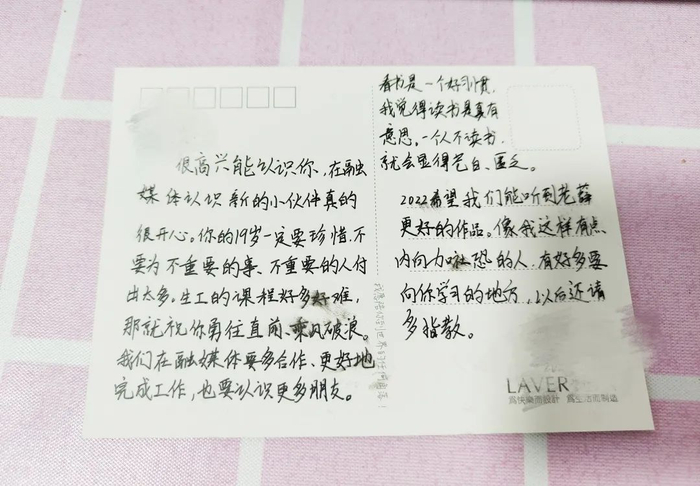 很高兴能认识你,在融
媒体认识新的小伙伴真的
很开心。你的19岁一定要珍惜,不
要为不重要的事、不重要的人付
出太多。生工的课程好多好难,
那就祝你勇往直前、乘风破浪。
我们在融媒体要多合作、更好地
完成工作,也要认识更多朋友。
看书是一个好习惯,
我觉得读书是真有
意思。一个人不读书,
就会显得苍白、匮乏。
2022希望我们能听到老薛
更好的作品。像我这样有点
内向力社恐的人,有好多要
向你学习的地方,以后还请
多指教。
LAVER
為快樂而設計 為生活而製造